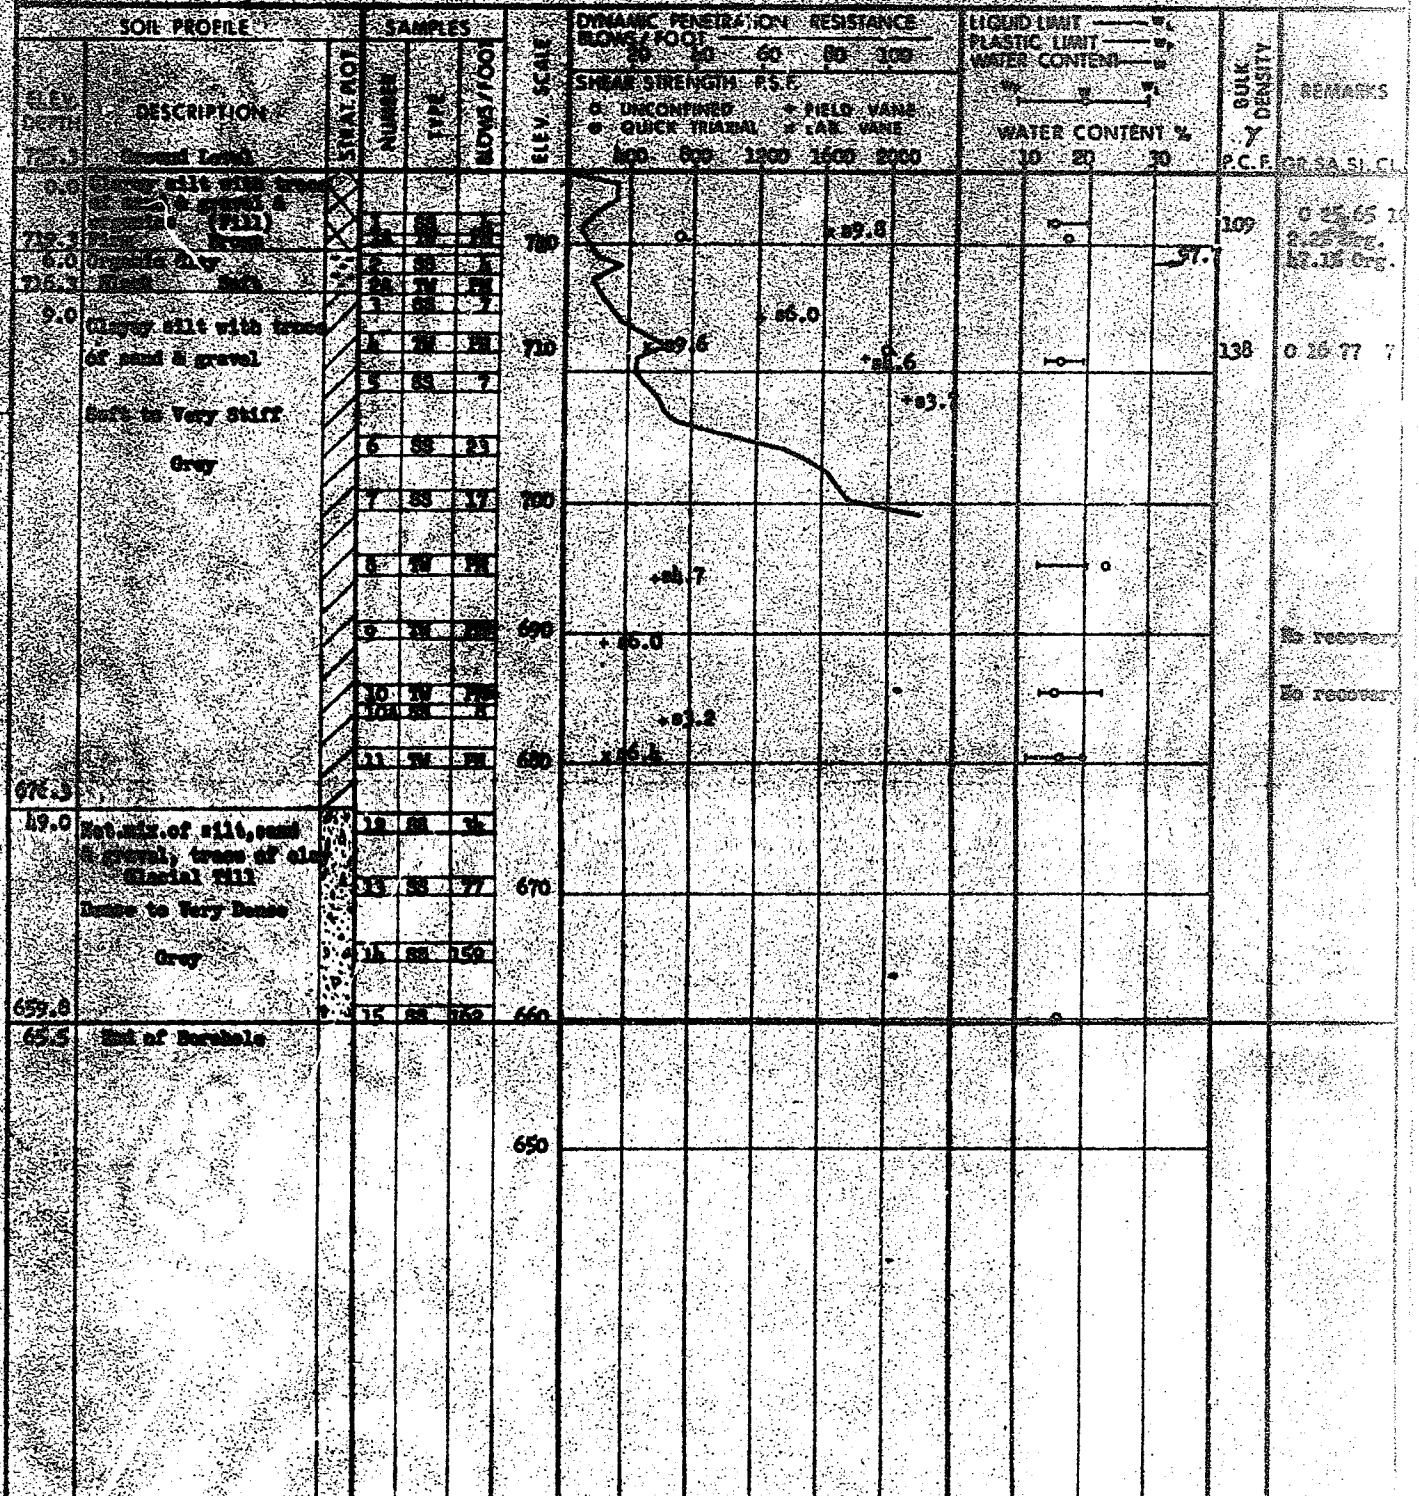 SOIL PROFILE
SAMPLES
ELEV. SCALE
DYNAMIC PENETRATION RESISTANCE
BLOWS / FOOT
20 40 60 80 100
SHEAR STRENGTH P.S.F.
o UNCONFINED + FIELD VANE
● QUICK TRIAXIAL × LAB. VANE
400 800 1200 1600 2000
LIQUID LIMIT W L
PLASTIC LIMIT W P
WATER CONTENT W
W P W W L
WATER CONTENT %
10 20 30
BULK DENSITY
γ
P.C.F.
REMARKS
GR.SA.SI.CL.
ELEV.
DEPTH
DESCRIPTION
STRAT. PLOT
NUMBER
TYPE
BLOWS / FOOT
725.3 Ground Level
0.0 Clayey silt with trace
of sand & gravel &
organics (Fill)
719.3 Firm Brown
6.0 Organic Clay
716.3 Black Soft
9.0 Clayey silt with trace
of sand & gravel
Soft to Very Stiff
Grey
676.3
49.0 Het.mix.of silt,sand
& gravel, trace of clay
Glacial Till
Dense to Very Dense
Grey
659.8
65.5 End of Borehole
1 SS
1A TW PH
2 SS
2A TW PH
3 SS 7
4 TW PH
5 SS 7
6 SS 23
7 SS 17
8 TW PH
9 TW
10 TW
10A SS
11 TW PH
12 SS 34
13 SS 77
14 SS 159
15 SS
720
710
700
690
680
670
660
650
s9.8
s6.0
s9.6
s3.7
s4.7
s6.0
s3.2
s6.4
97.7
109
138
0 25 65 10
0 16 77 7
No recovery
No recovery